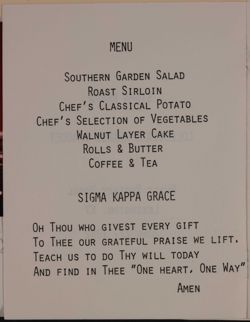 MENU
SOUTHERN GARDEN SALAD
ROAST SIRLOIN
CHEF'S CLASSICAL POTATO
CHEF'S SELECTION OF VEGETABLES
WALNUT LAYER CAKE
ROLLS & BUTTER
COFFEE & TEA
SIGMA KAPPA GRACE
OH THOU WHO GIVEST EVERY GIFT
TO THEE OUR GRATEFUL PRAISE WE LIFT.
TEACH US TO DO THY WILL TODAY
AND FIND IN THEE "ONE HEART, ONE WAY"
AMEN